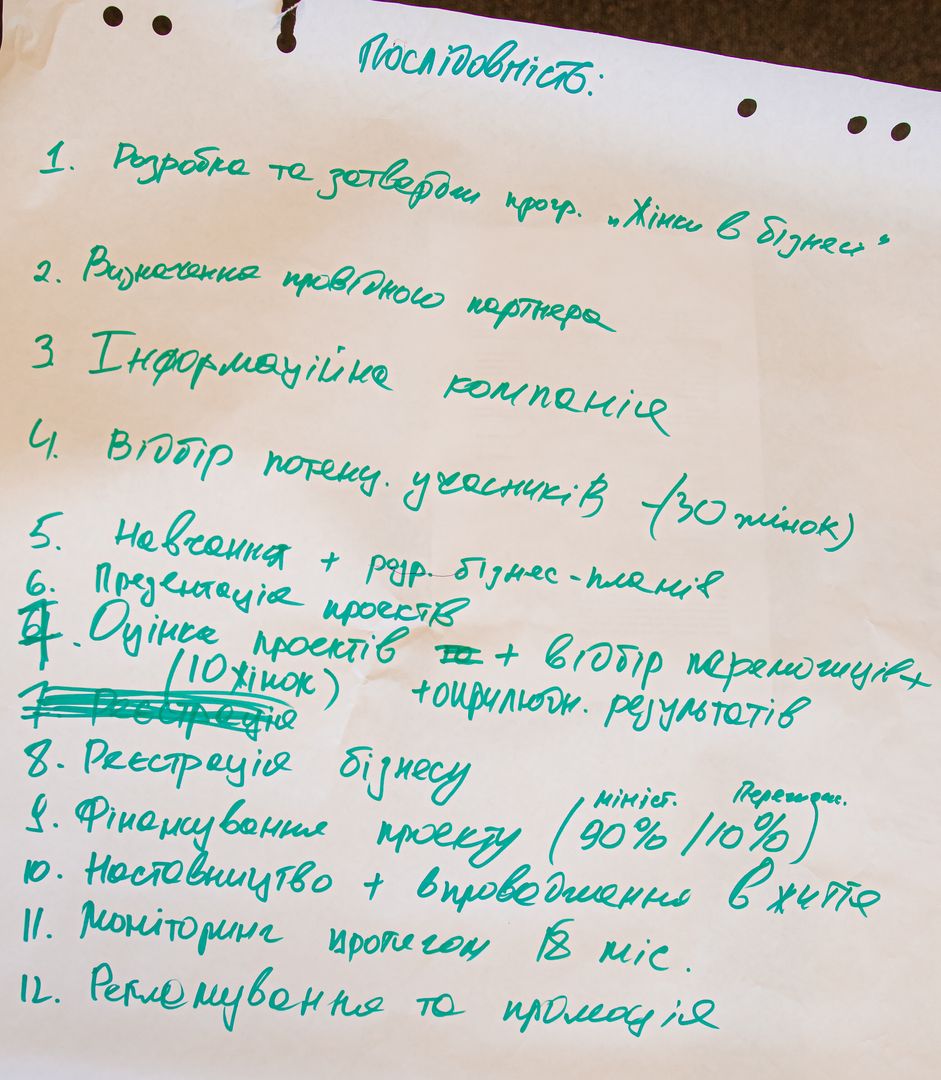 Послідовність:
1. Розробка та затвердж прогр. „Жінки в бізнесі"
2. Визначення провідного партнера
3 Інформаційна компанія
4. Відбір потенц. учасників -(30 жінок)
5. Навчання + розр. бізнес-планів
6. Презентація проєктів
7. Оцінка проєктів та + відбір переможців +
(10 жінок) + оприлюдн. результатів
7. Реєстрація
8. Реєстрація бізнесу
мініст. Переможн.
9. Фінансування проекту (90% /10%)
10. Наставництво + впровадження в життя
11. Моніторинг протягом 18 міс.
12. Рекламування та промоція